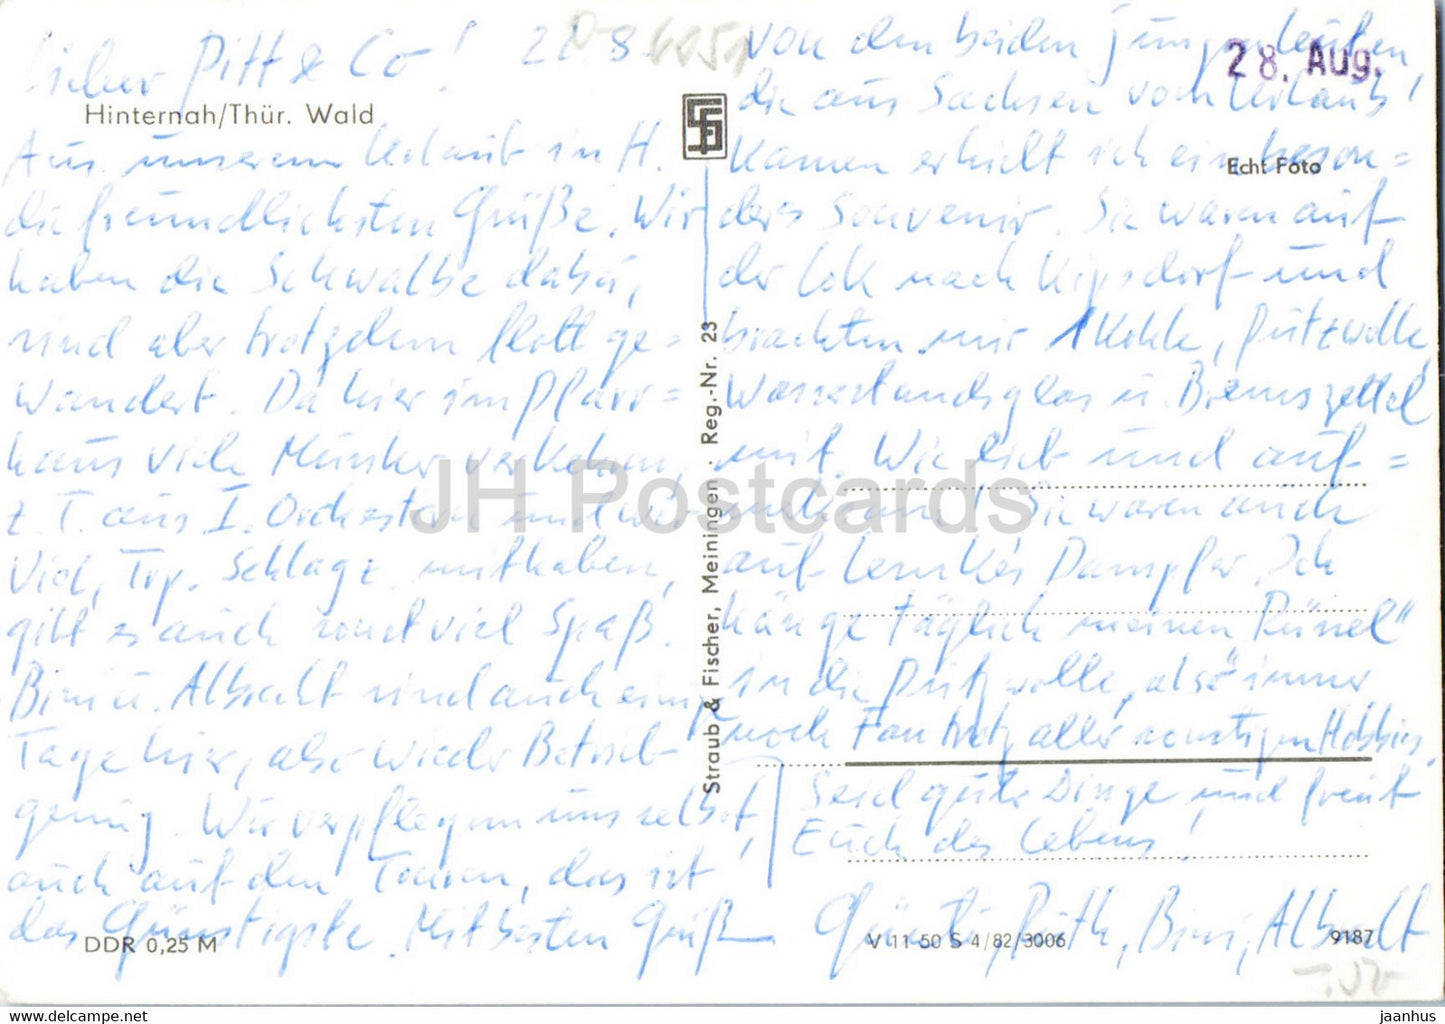 Lieber Pitt & Co! 22 8
Hinternah/Thür. Wald
Aus unserem Urlaub in H.
die freundlichsten Grüße. Wir
haben die Schwalbe dabei,
sind aber trotzdem flott ge=
wandert. Da hier im Pfarr=
haus viele Musiker verkehren,
z. T. aus I. Orchestern und wir
Viol, Trp. Schlagz. mithaben,
gibt es auch sonst viel Spaß.
Bini u. Albrecht sind auch einige
Tage hier, also wieder Betrieb
genug. Wir verpflegen uns selbst,
auch auf den Touren, das ist
das Günstigste. Mit besten Grüß
DDR 0,25 M
Straub & Fischer, Meiningen · Reg.-Nr. 23
28. Aug.
Echt Foto
von den beiden jungen Leuten
die aus Sachsen vom Urlaub
kamen erhielt ich ein beson=
deres Souvenir. Sie waren auf
der Lok nach Kipsdorf und
brachten mir 1 Kohle, Putzwolle,
Wasserstandsglas u. Bremszettel
mit. Wie lieb und auf=
merksam! Sie waren auch
auf Lemkes Dampfer. Ich
hänge täglich meinen "Rüssel"
in die Putzwolle, also immer
noch Fan trotz aller sonstigen Hobbies.
Seid guter Dinge und freut
Euch des Lebens!
Günter, Ruth, Bini, Albrecht
V 11 50 S 4/82/3006
9187
JH Postcards
jaanhus @ www.delcampe.net